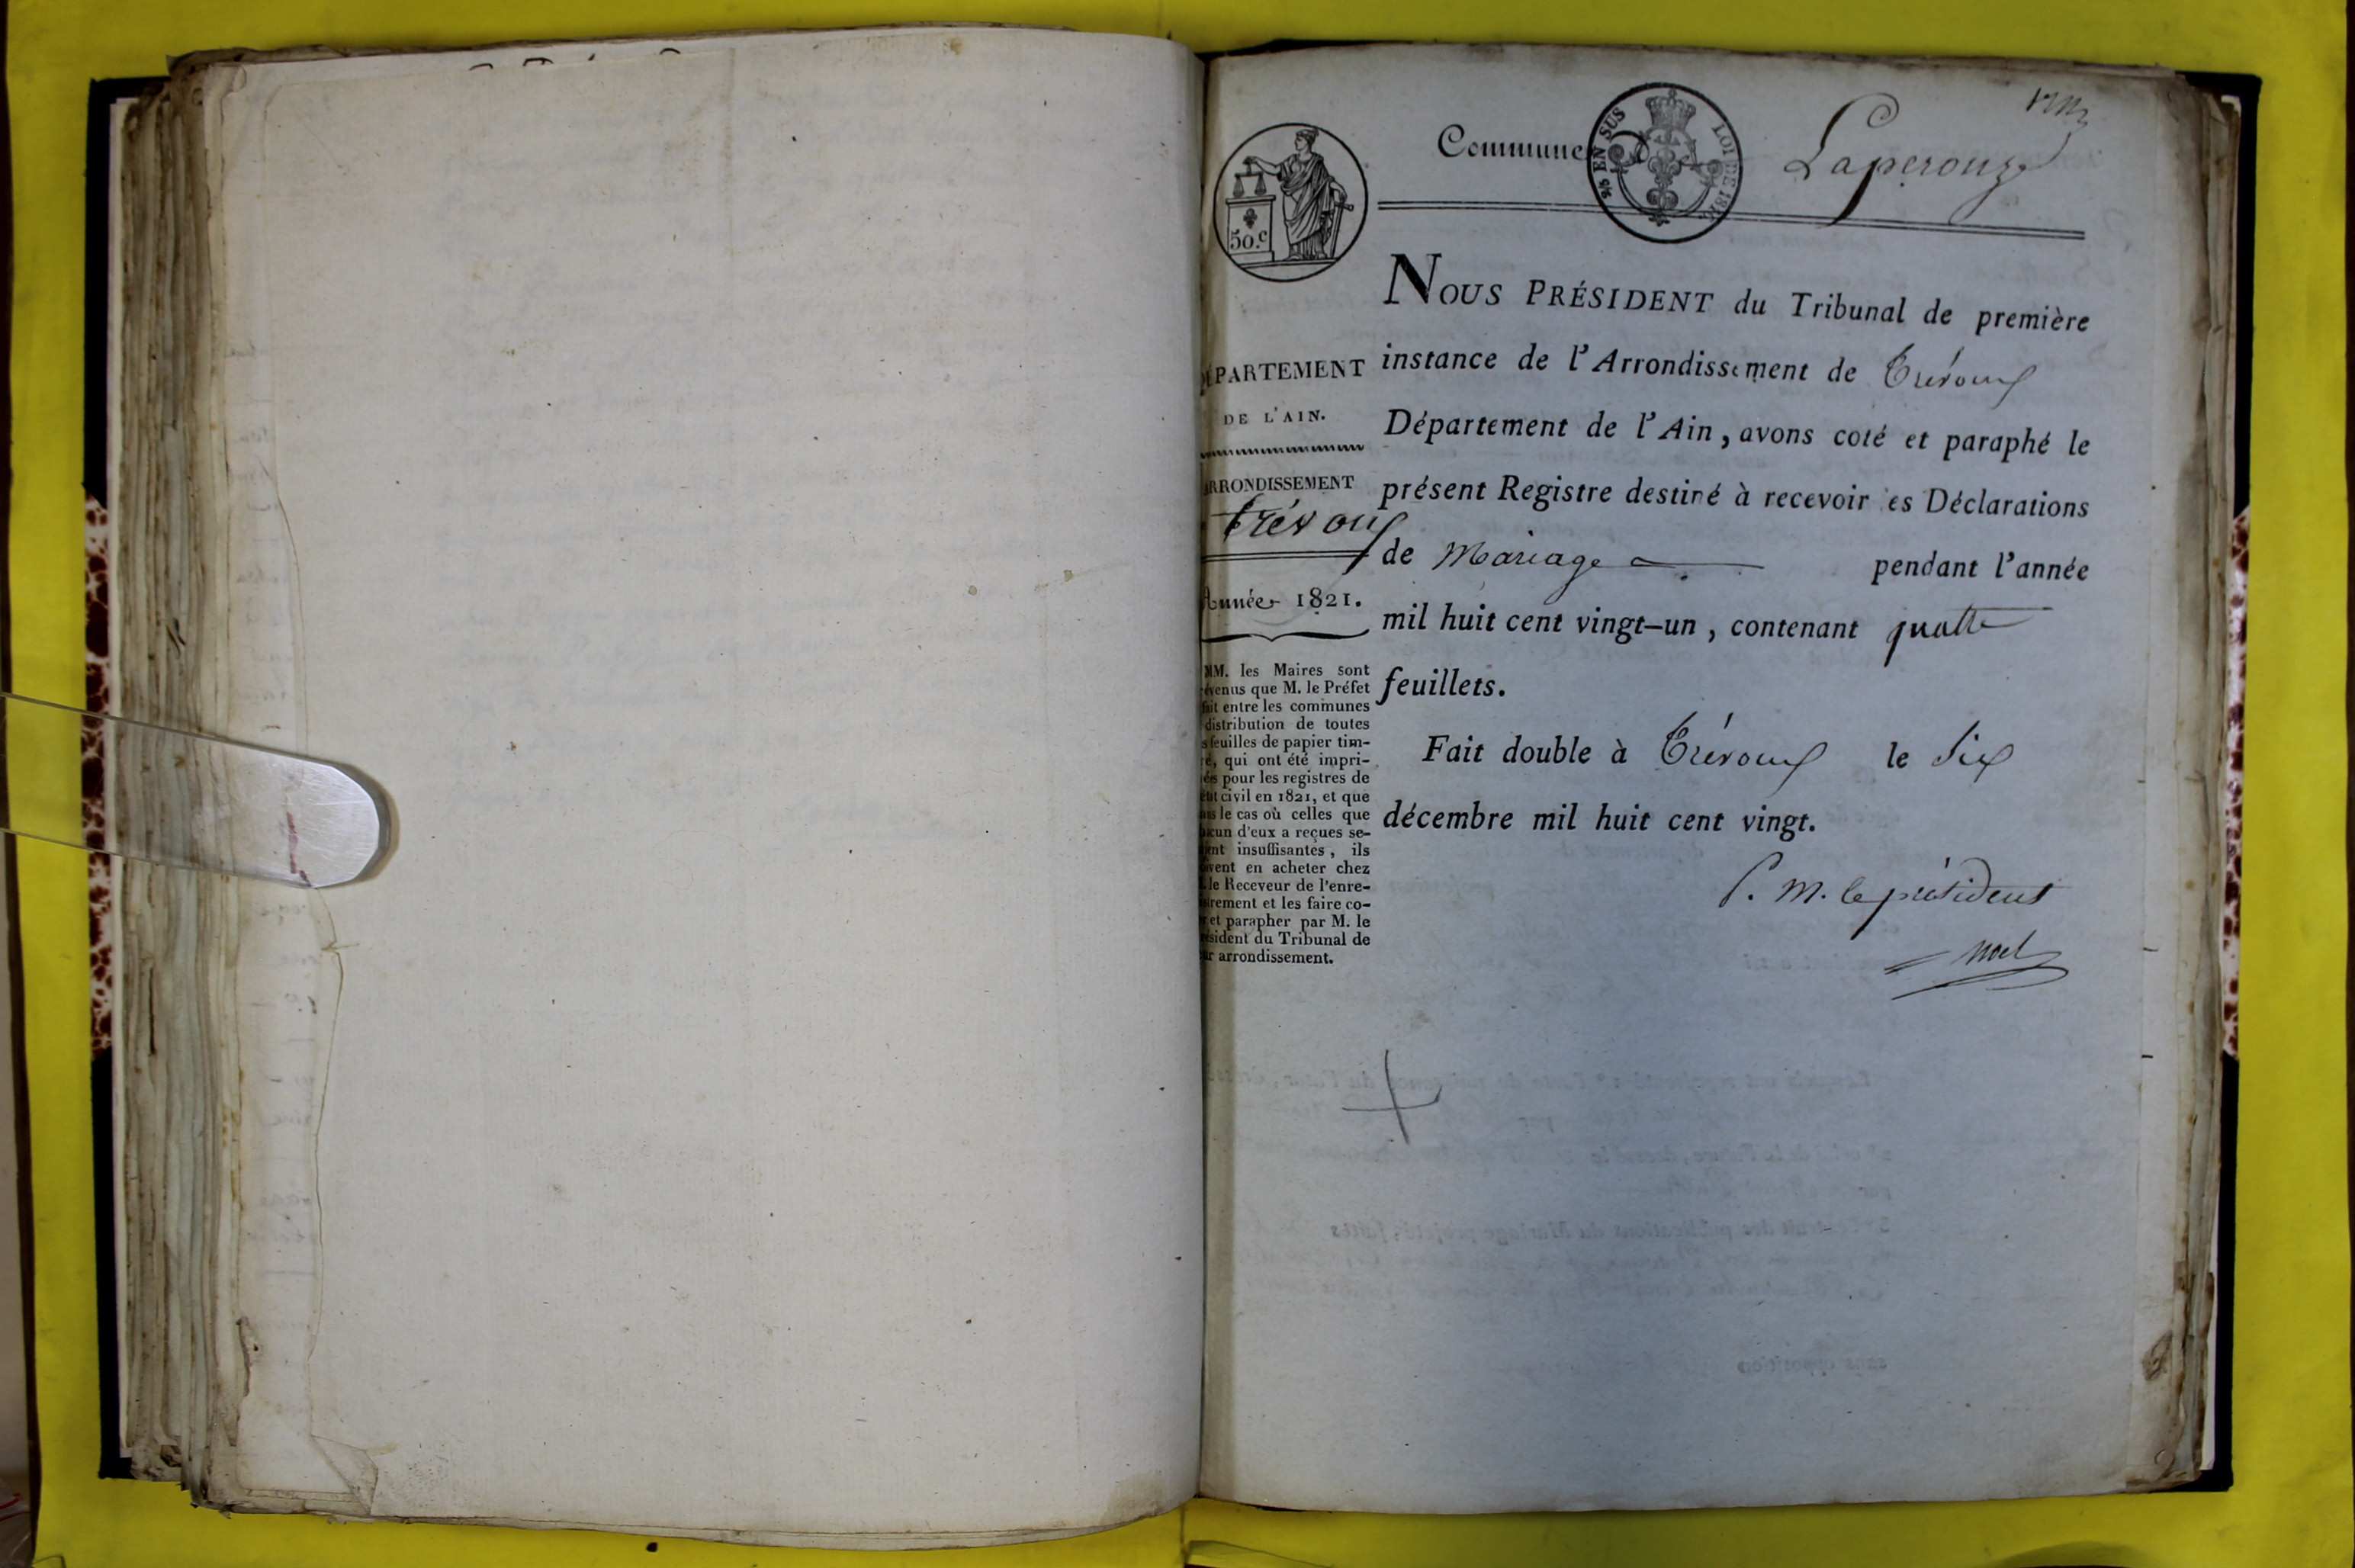 Commune
Laperouze
⅖ EN SUS
LOI DE 181
50.c
Nous Président du Tribunal de première
instance de l'Arrondissement de Trévoux
Département de l'Ain, avons coté et paraphé le
présent Registre destiné à recevoir es Déclarations
de Mariage pendant l'année
mil huit cent vingt-un, contenant quatre
feuillets.
Fait double à Trévoux le Six
décembre mil huit cent vingt.
P. M. le président
Noel
ÉPARTEMENT
DE L'AIN.
ARRONDISSEMENT
Trévoux
Année 1821.
MM. les Maires sont
évenus que M. le Préfet
fait entre les communes
distribution de toutes
s feuilles de papier tim-
é, qui ont été impri-
ées pour les registres de
état civil en 1821, et que
ns le cas où celles que
acun d'eux a reçues se-
ient insuffisantes, ils
ivent en acheter chez
le Receveur de l'enre-
strement et les faire co-
r et parapher par M. le
résident du Tribunal de
ur arrondissement.